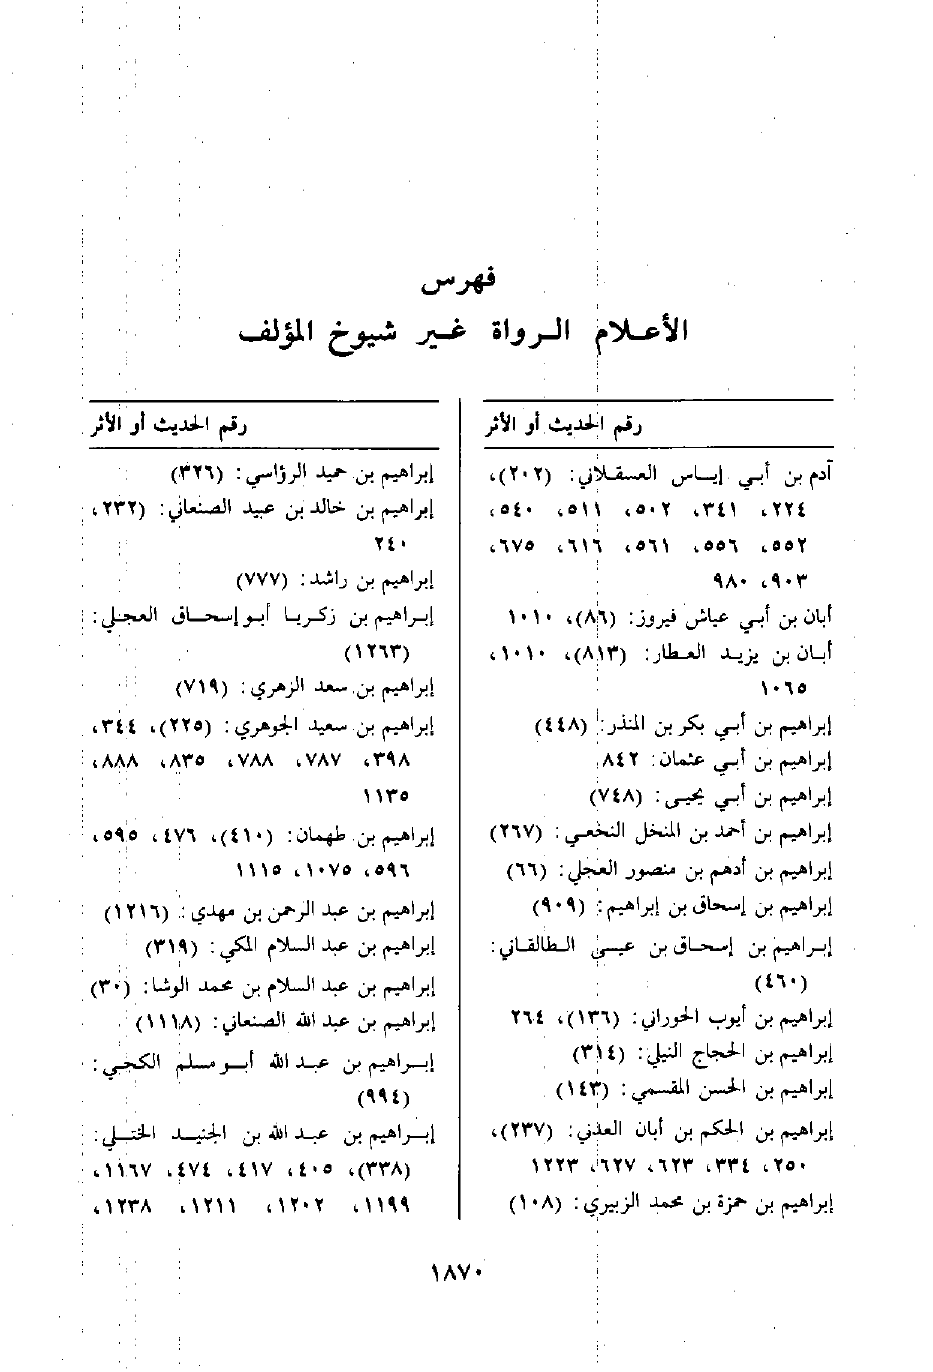 فهرس
الأعلام الرواة غير شيوخ المؤلف
رقم الحديث أو الأثر
آدم بن أبي إياس العسقلاني: (٢٠٢)،
٢٢٤، ٣٤١، ٥٠٢، ٥١١، ٥٤٠،
٥٥٢، ٥٥٦، ٥٦١، ٦١٦، ٦٧٥،
٩٠٣، ٩٨٠
أبان بن أبي عياش فيروز: (٨٦)، ١٠١٠
أبان بن يزيد العطار: (٨١٣)، ١٠١٠،
١٠٦٥
إبراهيم بن أبي بكر بن المنذر: (٤٤٨)
إبراهيم بن أبي عثمان: ٨٤٢
إبراهيم بن أبي يحيى: (٧٤٨)
إبراهيم بن أحمد بن المنخل النخعي: (٢٦٧)
إبراهيم بن أدهم بن منصور العجلي: (٦٦)
إبراهيم بن إسحاق بن إبراهيم: (٩٠٩)
إبراهيم بن إسحاق بن عيسى الطالقاني:
(٤٦٠)
إبراهيم بن أيوب الحوراني: (١٣٦)، ٢٦٤
إبراهيم بن الحجاج النيلي: (٣١٤)
إبراهيم بن الحسن المقسمي: (١٤٣)
إبراهيم بن الحكم بن أبان العدني: (٢٣٧)،
٢٥٠، ٣٣٤، ٦٢٣، ٦٢٧، ١٢٢٣
إبراهيم بن حمزة بن محمد الزبيري: (١٠٨)
رقم الحديث أو الأثر
إبراهيم بن حميد الرؤاسي: (٣٢٦)
إبراهيم بن خالد بن عبيد الصنعاني: (٢٣٢)،
٢٤٠
إبراهيم بن راشد: (٧٧٧)
إبراهيم بن زكريا أبو إسحاق العجلي:
(١٢٦٣)
إبراهيم بن سعد الزهري: (٧١٩)
إبراهيم بن سعيد الجوهري: (٢٢٥)، ٣٤٤،
٣٩٨، ٧٨٧، ٧٨٨، ٨٣٥، ٨٨٨،
١١٣٥
إبراهيم بن طهمان: (٤١٠)، ٤٧٦، ٥٩٥،
٥٩٦، ١٠٧٥، ١١١٥
إبراهيم بن عبد الرحمن بن مهدي: (١٢١٦)
إبراهيم بن عبد السلام المكي: (٣١٩)
إبراهيم بن عبد السلام بن محمد الوشا: (٣٠)
إبراهيم بن عبد الله الصنعاني: (١١١٨)
إبراهيم بن عبد الله أبو مسلم الكجي:
(٩٩٤)
إبراهيم بن عبد الله بن الجنيد الختلي:
(٣٣٨)، ٤٠٥، ٤١٧، ٤٧٤، ١١٦٧،
١١٩٩، ١٢٠٢، ١٢١١، ١٢٣٨،
١٨٧٠